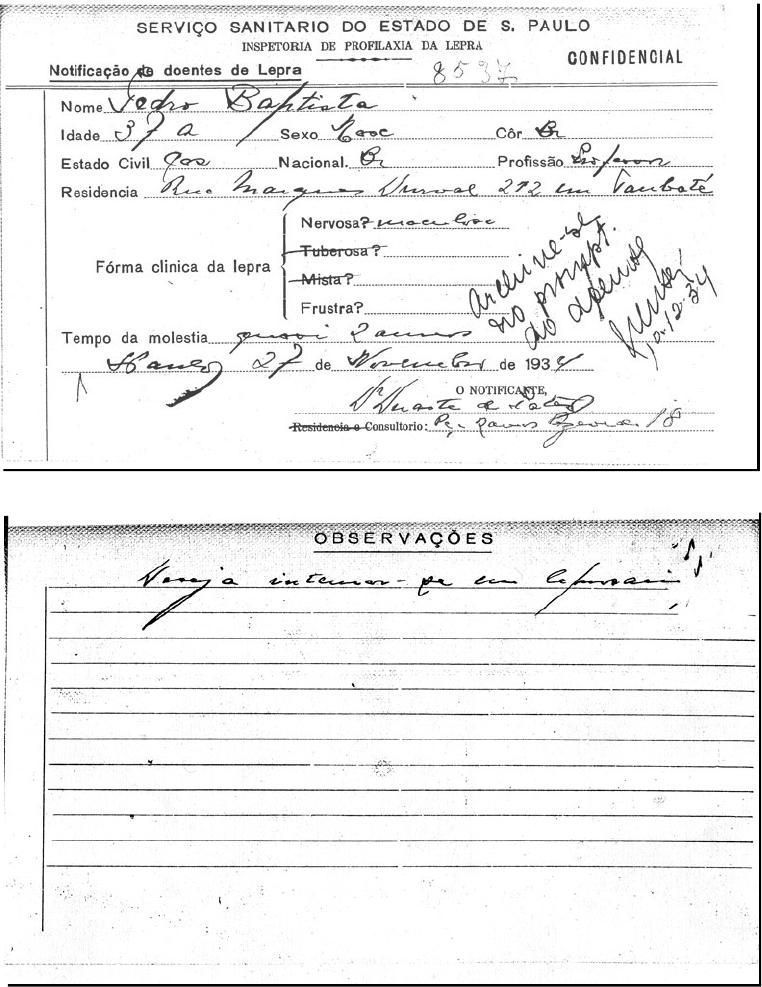 SERVIÇO SANITARIO DO ESTADO DE S. PAULO
INSPETORIA DE PROFILAXIA DA LEPRA
CONFIDENCIAL
Notificação de doentes de Lepra 8537
Nome Pedro Baptista
Idade 37 a Sexo Masc Côr Br
Estado Civil Cas Nacional. Br Profissão Professor
Residencia Rua Marques 212 em Taubaté
Fórma clinica da lepra
Nervosa? maculosa
Tuberosa?
Mista?
Frustra?
Archive-se
no prompt.
do
10.12.34
Tempo da molestia quasi 2 annos
S Paulo 27 de Novembro de 1934
O NOTIFICANTE,
Dr Duarte do
Residencia e Consultorio: Pç. Ramos Azevedo 18
OBSERVAÇÕES
Deseja internar-se em leprosario